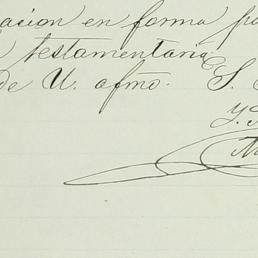 acion en forma pa
testamentaria
de U. afmo. S. S.